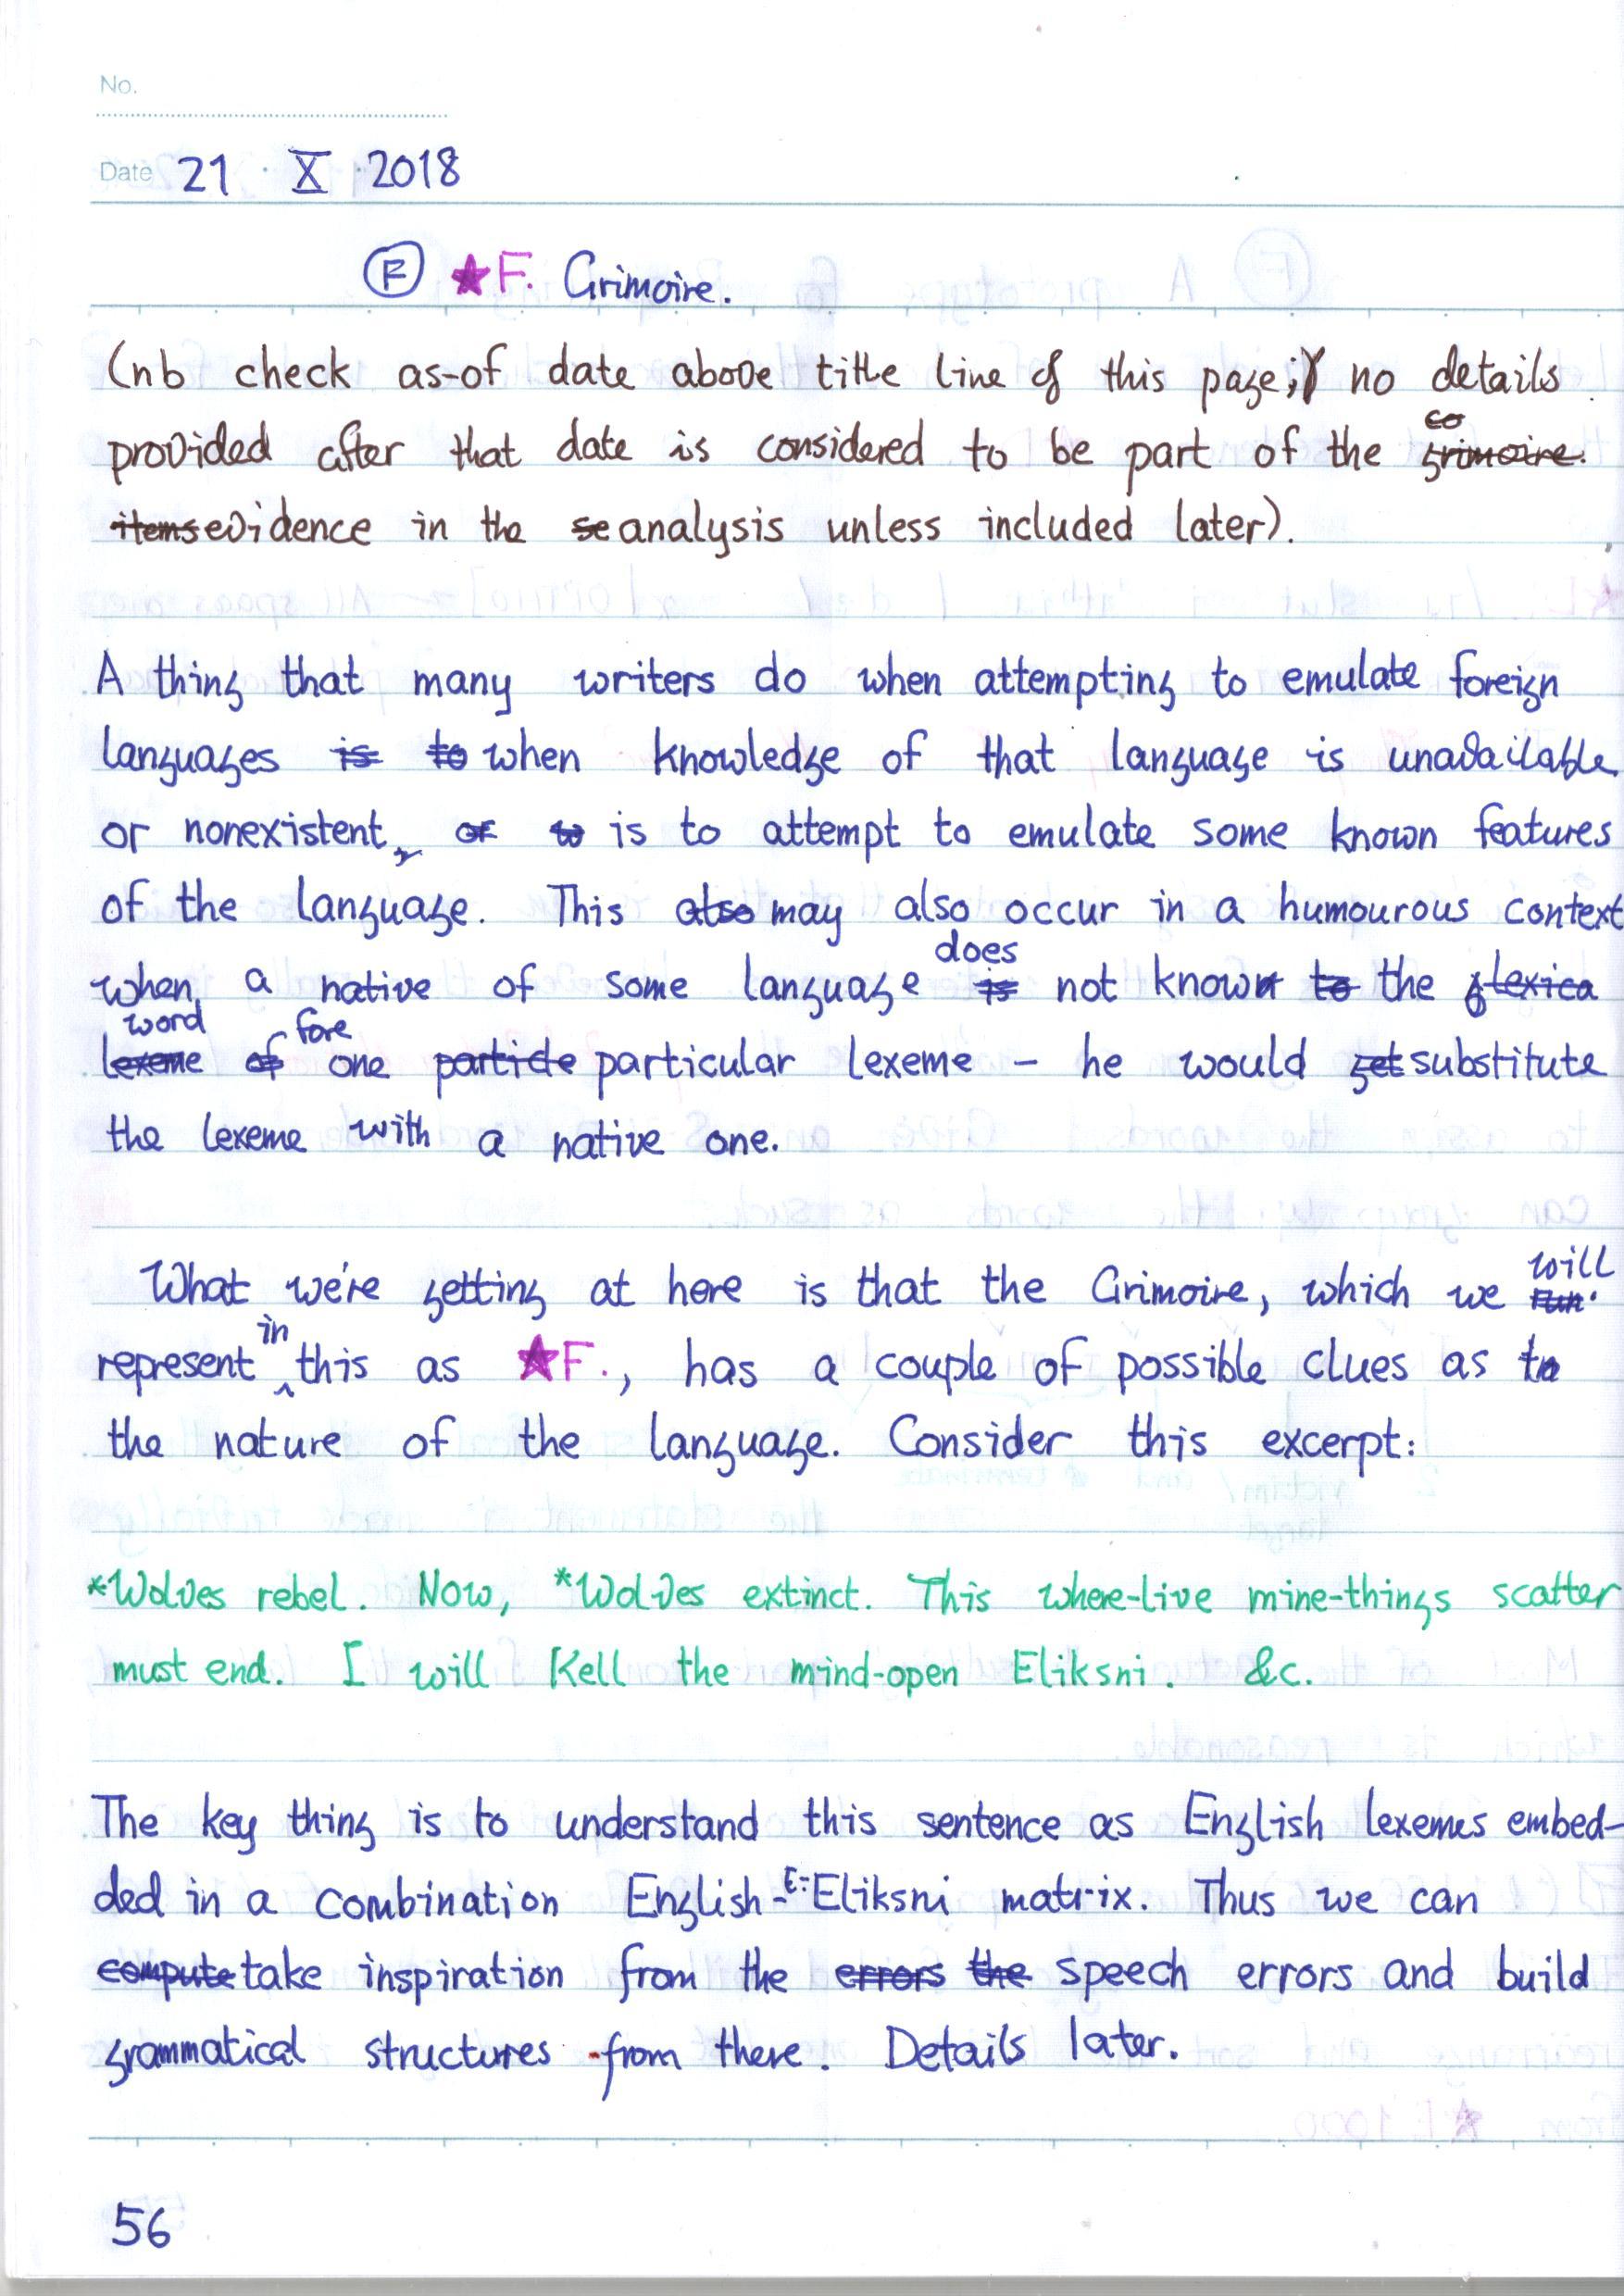 No.
Date 21 · X · 2018
Ⓕ ★F. Grimoire.
(nb check as-of date above title line of this page; no details
provided after that date is considered to be part of the co grimoire.
items evidence in the se analysis unless included later).
A thing that many writers do when attempting to emulate foreign
languages is to when knowledge of that language is unavailable
or nonexistent, or to is to attempt to emulate some known features
of the language. This also may also occur in a humourous context
when a native of some language is does not known to the lexica
lexeme word of fore one particle particular lexeme – he would get substitute
the lexeme with a native one.
What we're getting at here is that the Grimoire, which we run will
represent in this as ★F., has a couple of possible clues as to
the nature of the language. Consider this excerpt:
*Wolves rebel. Now, *Wolves extinct. This where-live mine-things scatter
must end. I will Kell the mind-open Eliksni. &c.
The key thing is to understand this sentence as English lexemes embed-
ded in a combination English-Eliksni matrix. Thus we can
compute take inspiration from the errors the speech errors and build
grammatical structures from there. Details later.
56